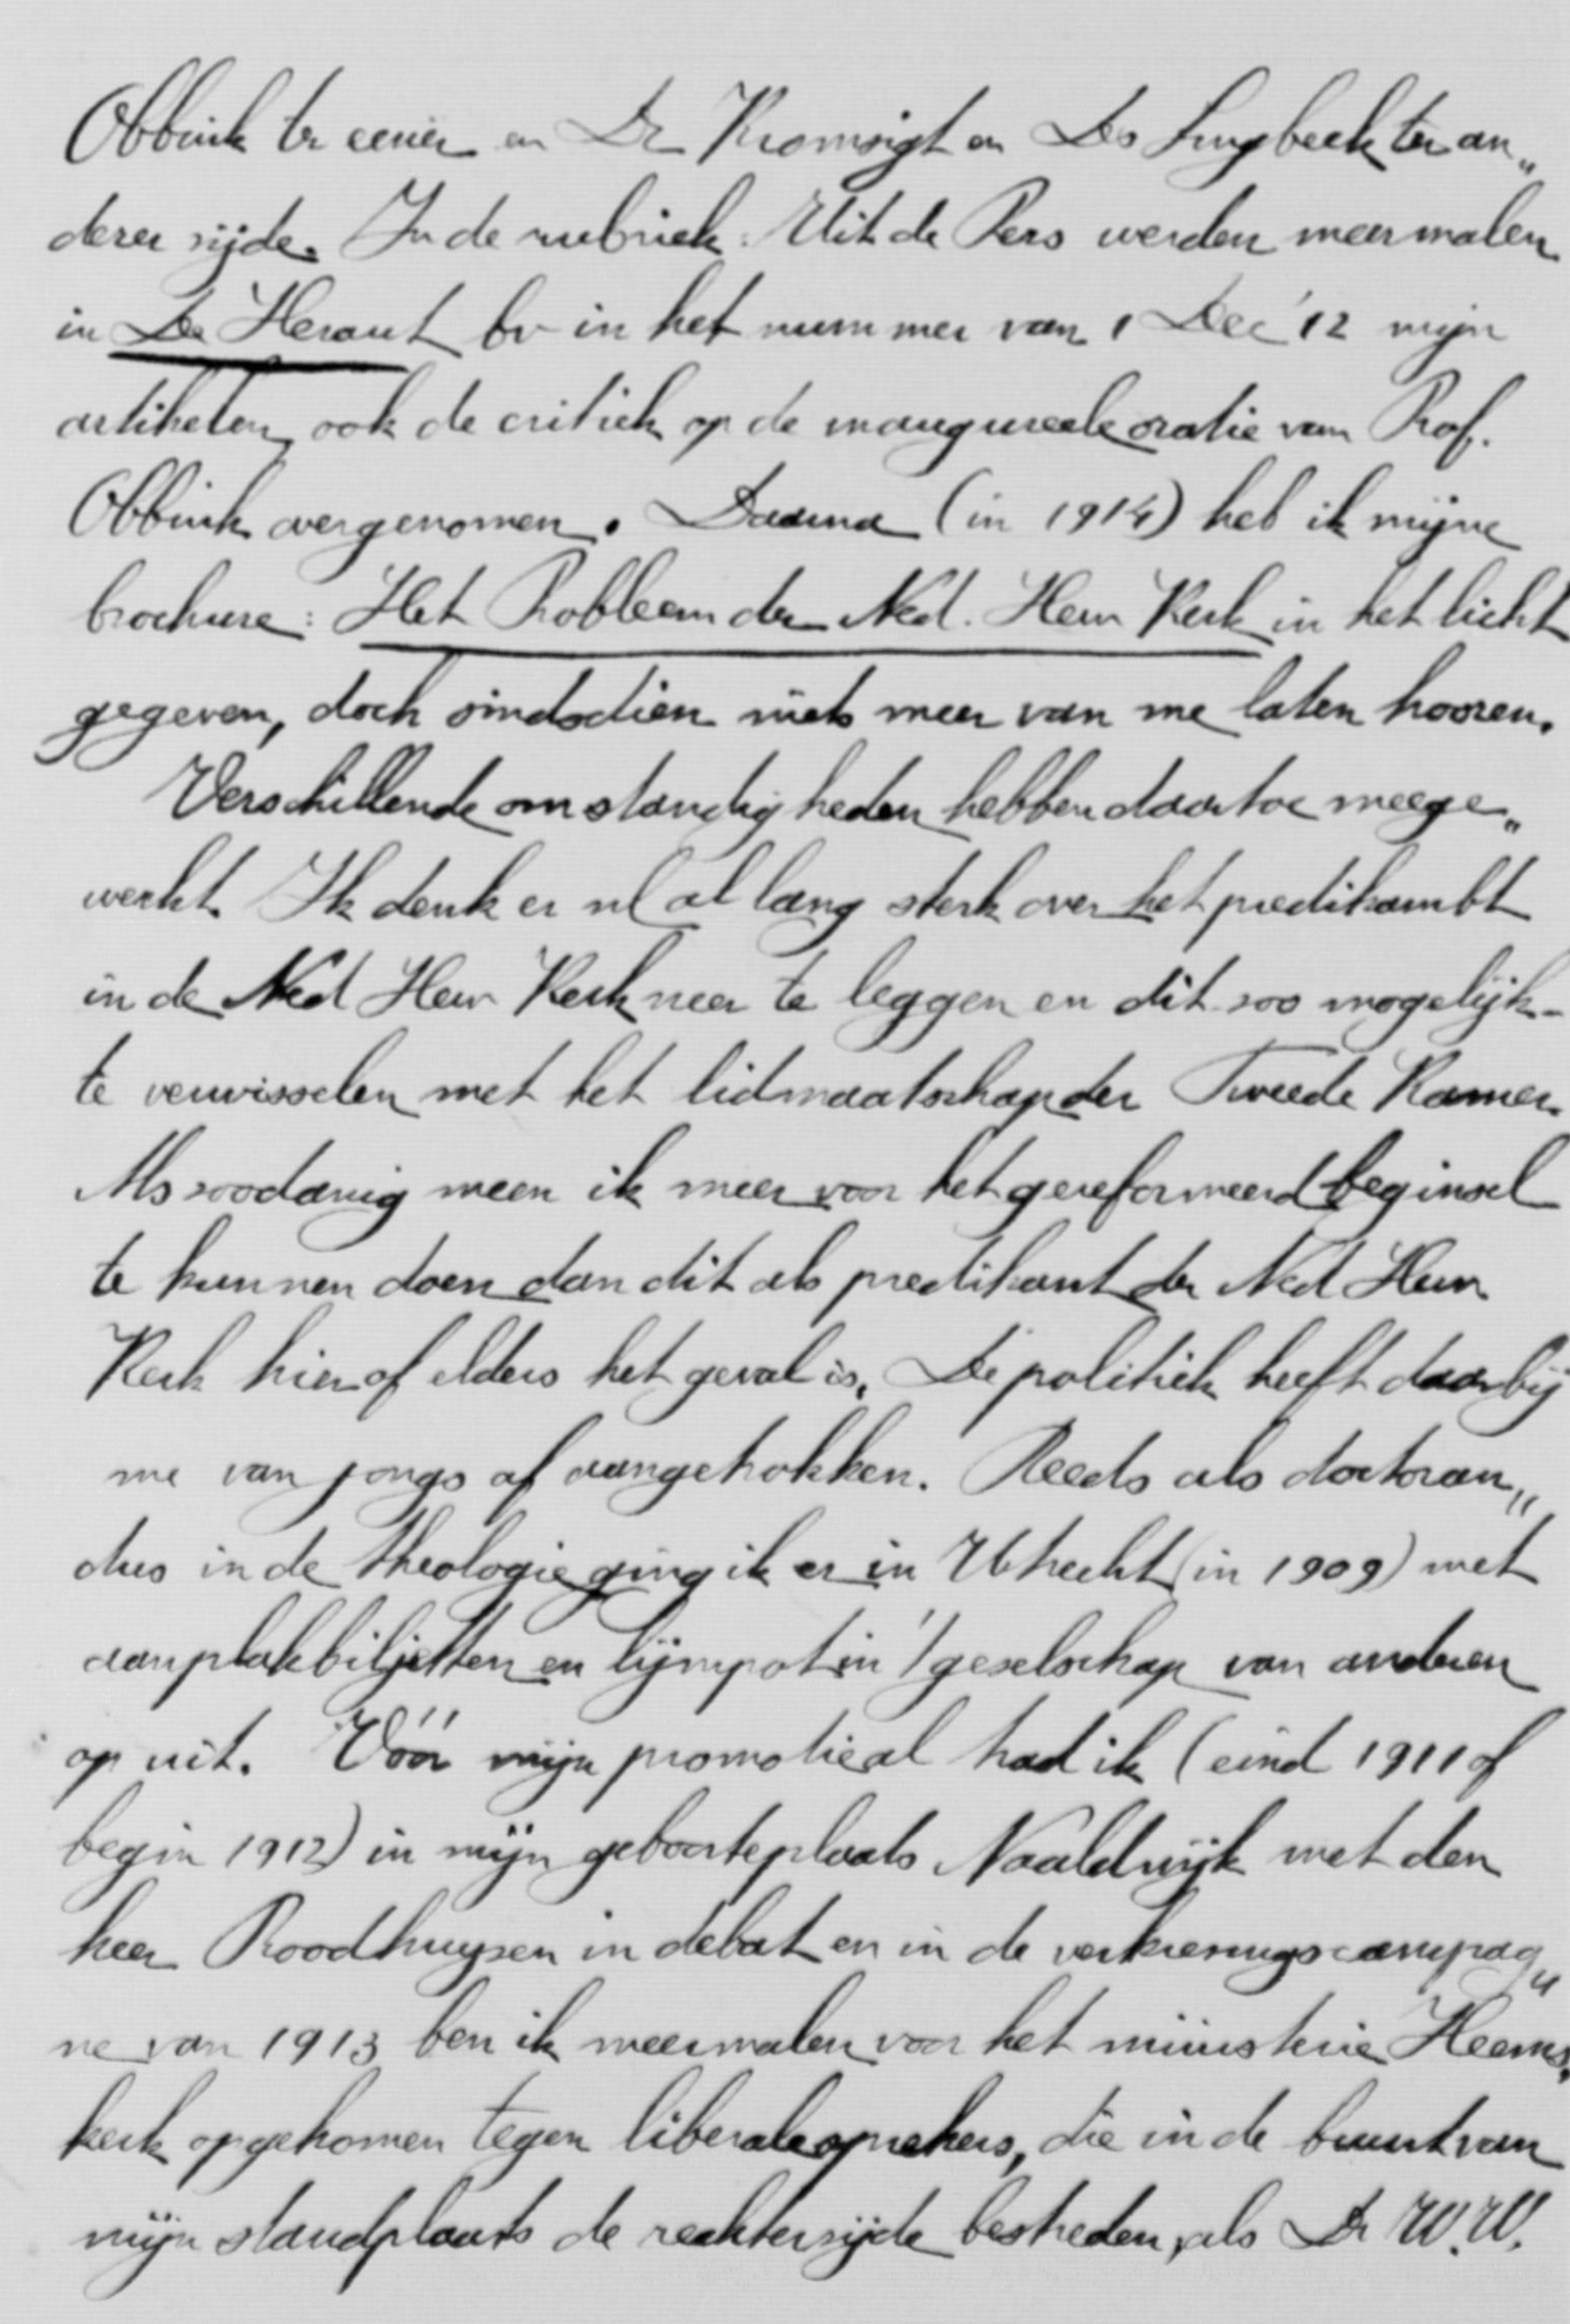 Obbink ter eener en Dr Kromsigt en Ds Lingbeek ter an„
derer zijde. In de rubriek: Uit de Pers werden meermalen
in De Heraut bv in het nummer van 1 Dec '12 mijn
artikelen, ook de critiek op de inaugureele oratie van Prof.
Obbink overgenomen. Daarna (in 1914) heb ik mijne
brochure: Het Probleem der Ned. Herv Kerk in het licht
gegeven, doch sindsdien niets meer van me laten hooren.
Verschillende omstandigheden hebben daartoe meege„
werkt. Ik denk er nl al lang sterk over het predikambt
in de Ned Herv Kerk neer te leggen en dit zoo mogelijk-
te verwisselen met het lidmaatschap der Tweede Kamer.
Als zoodanig meen ik meer voor het gereformeerd beginsel
te kunnen doen dan dit als predikant der Ned Herv
Kerk hier of elders het geval is. De politiek heeft daarbij
me van jongs af aangetrokken. Reeds als doctoran„
dus in de theologie ging ik er in Utrecht (in 1909) met
aanplakbiljetten en lijmpot in 't gezelschap van anderen
op uit. Vóór mijn promotie al had ik (eind 1911 of
begin 1912) in mijn geboorteplaats Naaldwijk met den
heer Roodhuyzen in debat en in de verkiezingscampag„
ne van 1913 ben ik meermalen voor het ministerie Heems„
kerk opgekomen tegen liberale sprekers, die in de buurt van
mijn standplaats de rechterzijde bestreden, als Dr W.W.